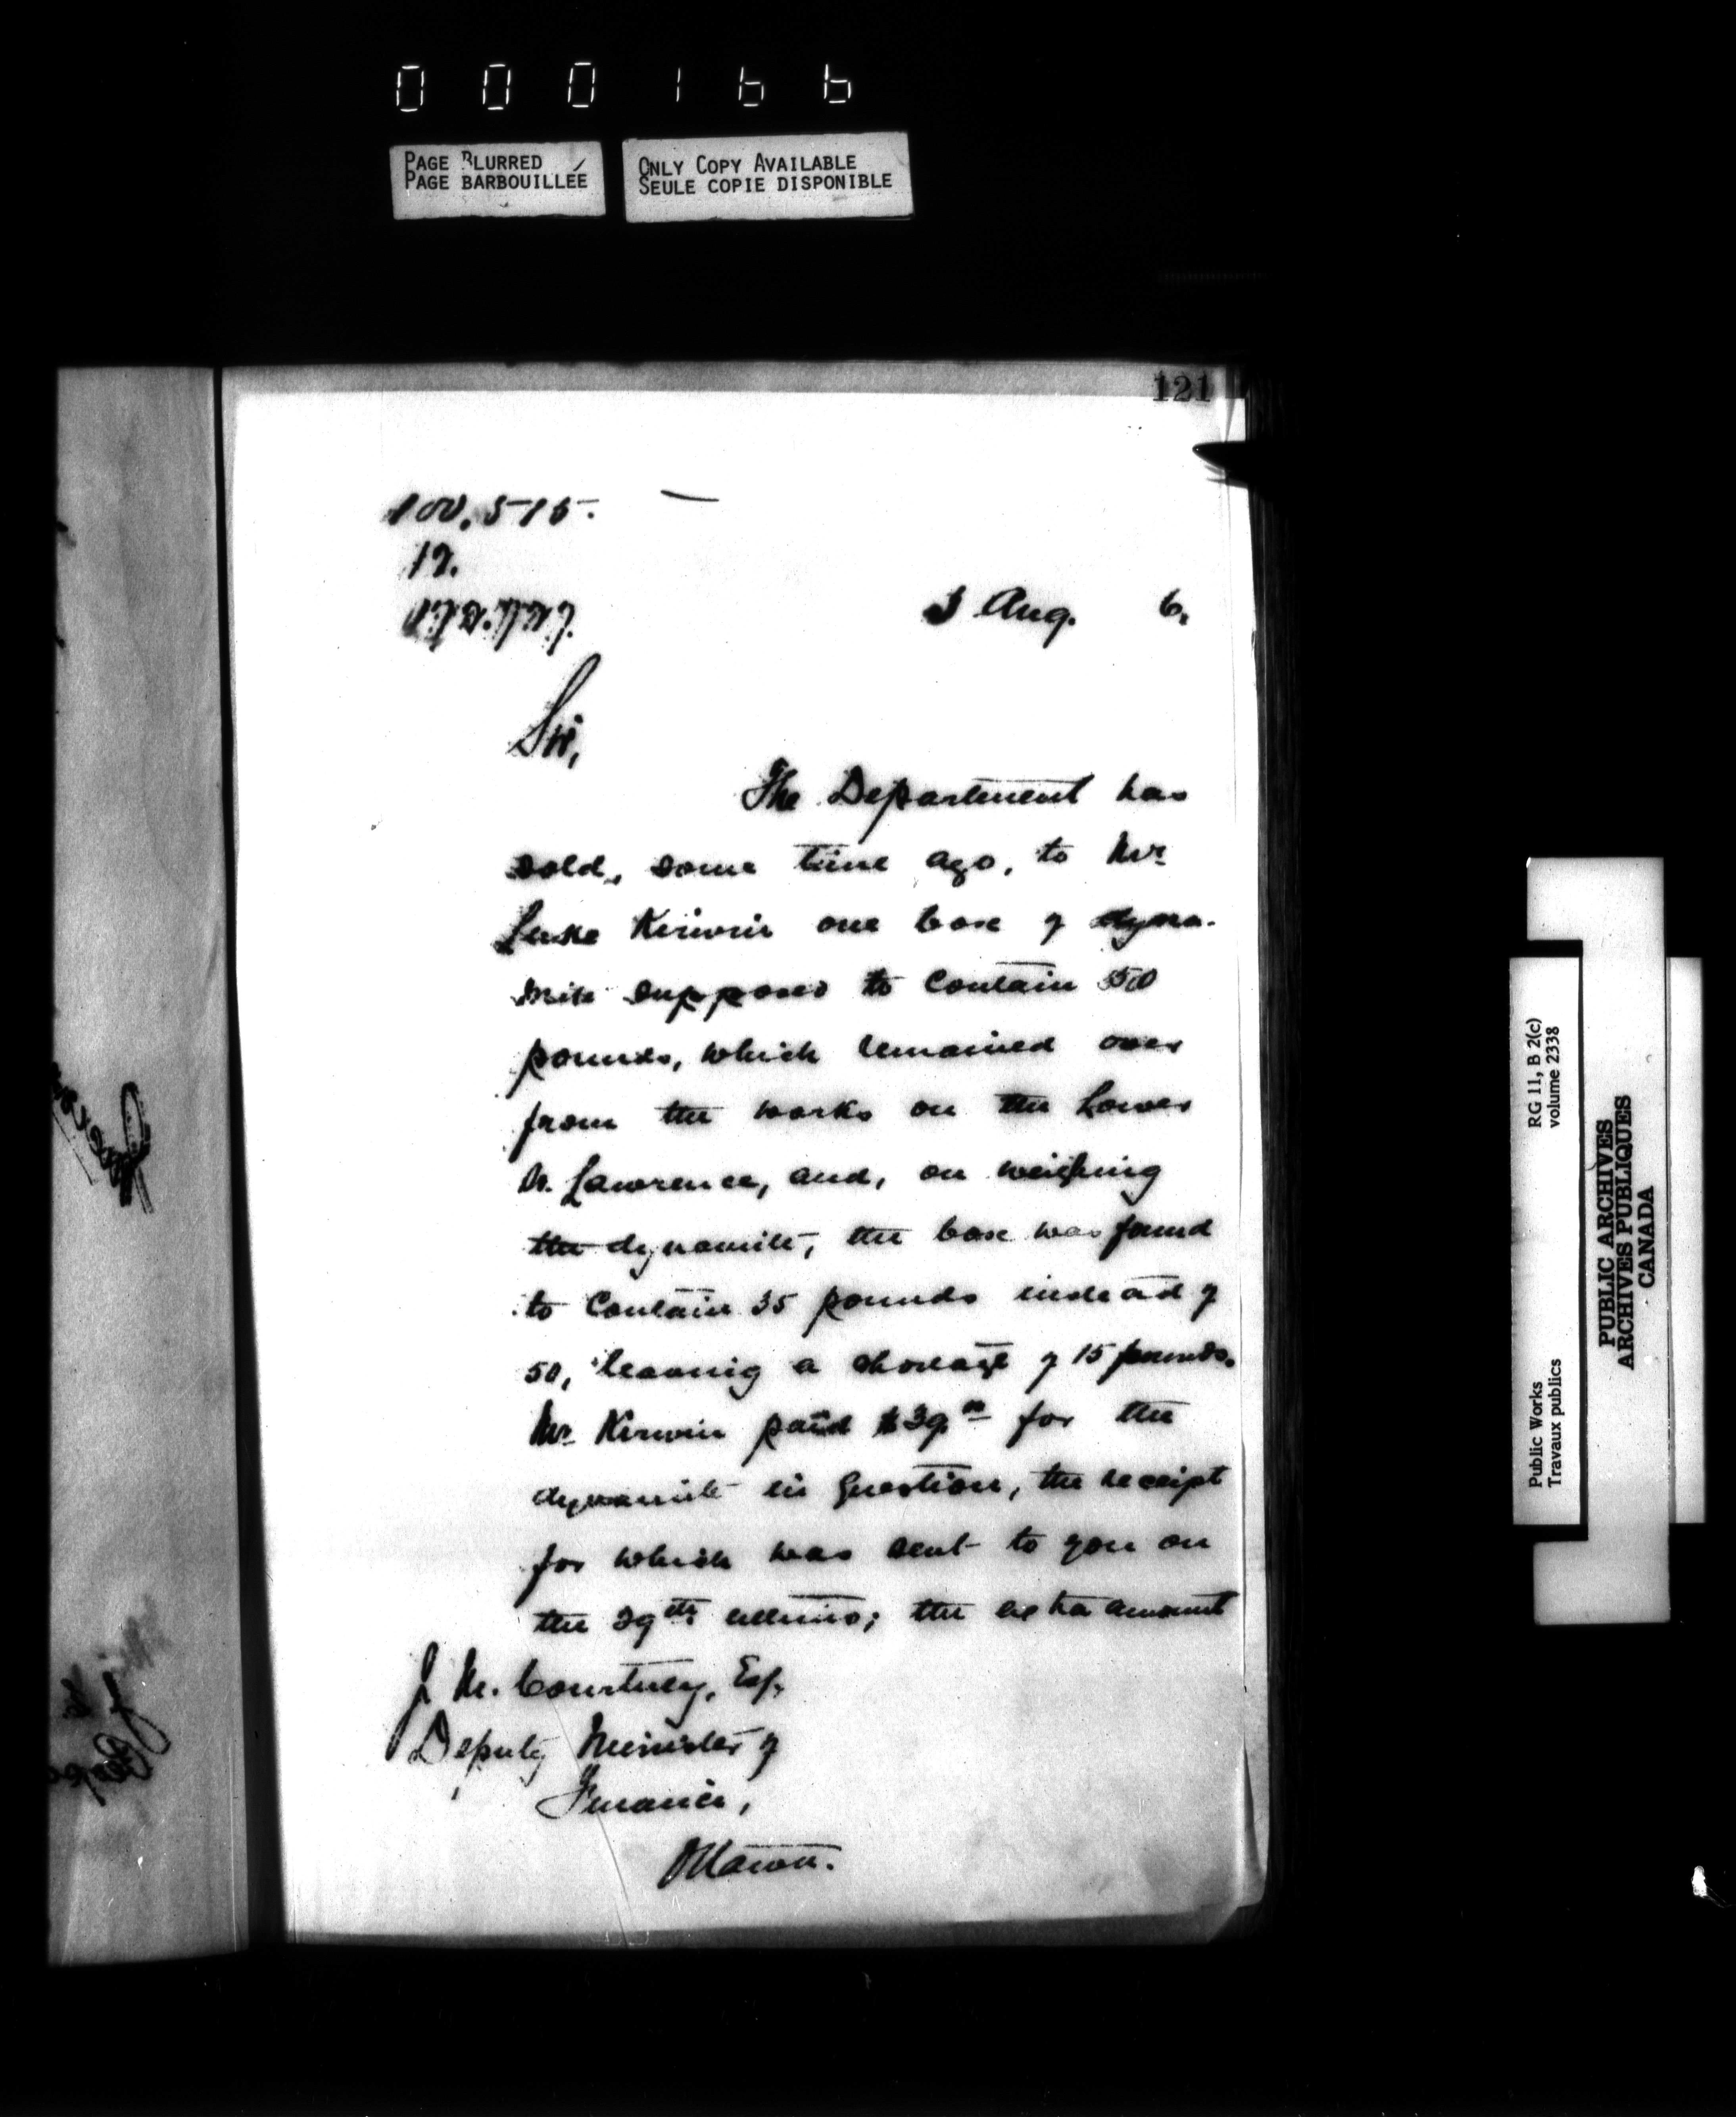 000166
PAGE BLURRED
PAGE BARBOUILLÉE
ONLY COPY AVAILABLE
SEULE COPIE DISPONIBLE
121
100.515.
19.
3 Aug. 6.
Sir,
The Department has
sold, some time ago, to Mr
Luke Kirwin one box of dyna-
mite supposed to contain 50
pounds, which remained over
from the works on the Lower
St. Lawrence, and, on weighing
the dynamite, the box was found
to contain 35 pounds instead of
50, leaving a shortage of 15 pounds.
Mr Kirwin paid $ for the
dynamite in question, the receipt
for which was sent to you on
the 29th ultimo; the extra amount
J. M. Courtney, Esq.
Deputy Minister of
Finance,
Ottawa.
Public Works
Travaux publics
RG 11, B 2(c)
volume 2338
PUBLIC ARCHIVES
ARCHIVES PUBLIQUES
CANADA